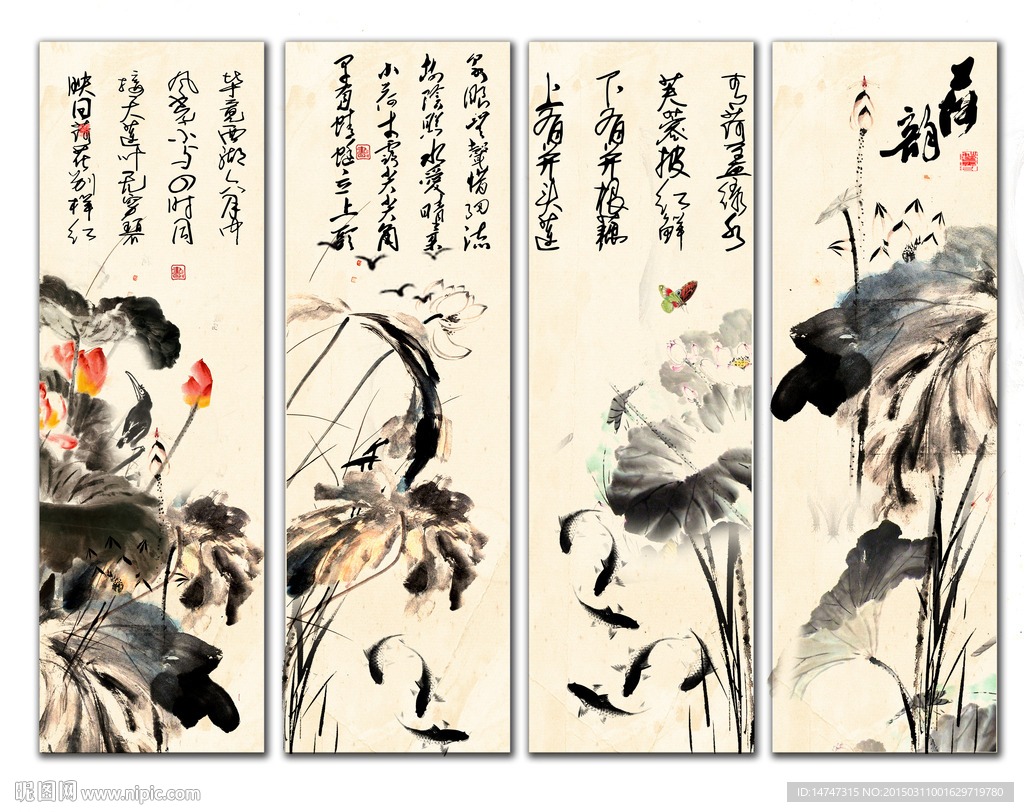 荷韵
青荷盖绿水
芙蓉披红鲜
下有并根藕
上有并头莲
泉眼无聲惜细流
树陰照水愛晴柔
小荷才露尖尖角
早有蜻蜓立上头
毕竟西湖六月中
风光不与四时同
接天莲叶无穷碧
映日荷花别样红
昵图网 www.nipic.com
ID:14747315 NO:20150311001629719780